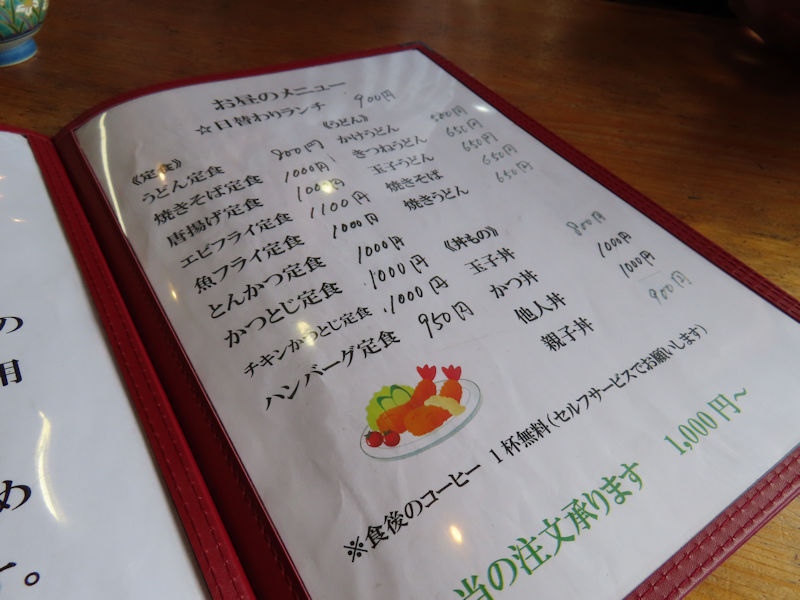 お昼のメニュー
☆日替わりランチ 900円
《定食》
うどん定食
焼きそば定食 1000円
唐揚げ定食 1000円
エビフライ定食 1100円
魚フライ定食 1000円
とんかつ定食 1000円
かつとじ定食 1000円
チキンかつとじ定食 1000円
ハンバーグ定食 950円
《うどん》
かけうどん
きつねうどん 650円
玉子うどん 650円
焼きそば 650円
焼きうどん 650円
《丼もの》
玉子丼 800円
かつ丼 1000円
他人丼 1000円
親子丼 900円
※食後のコーヒー 1杯無料(セルフサービスでお願いします)
当の注文承ります 1,000円~